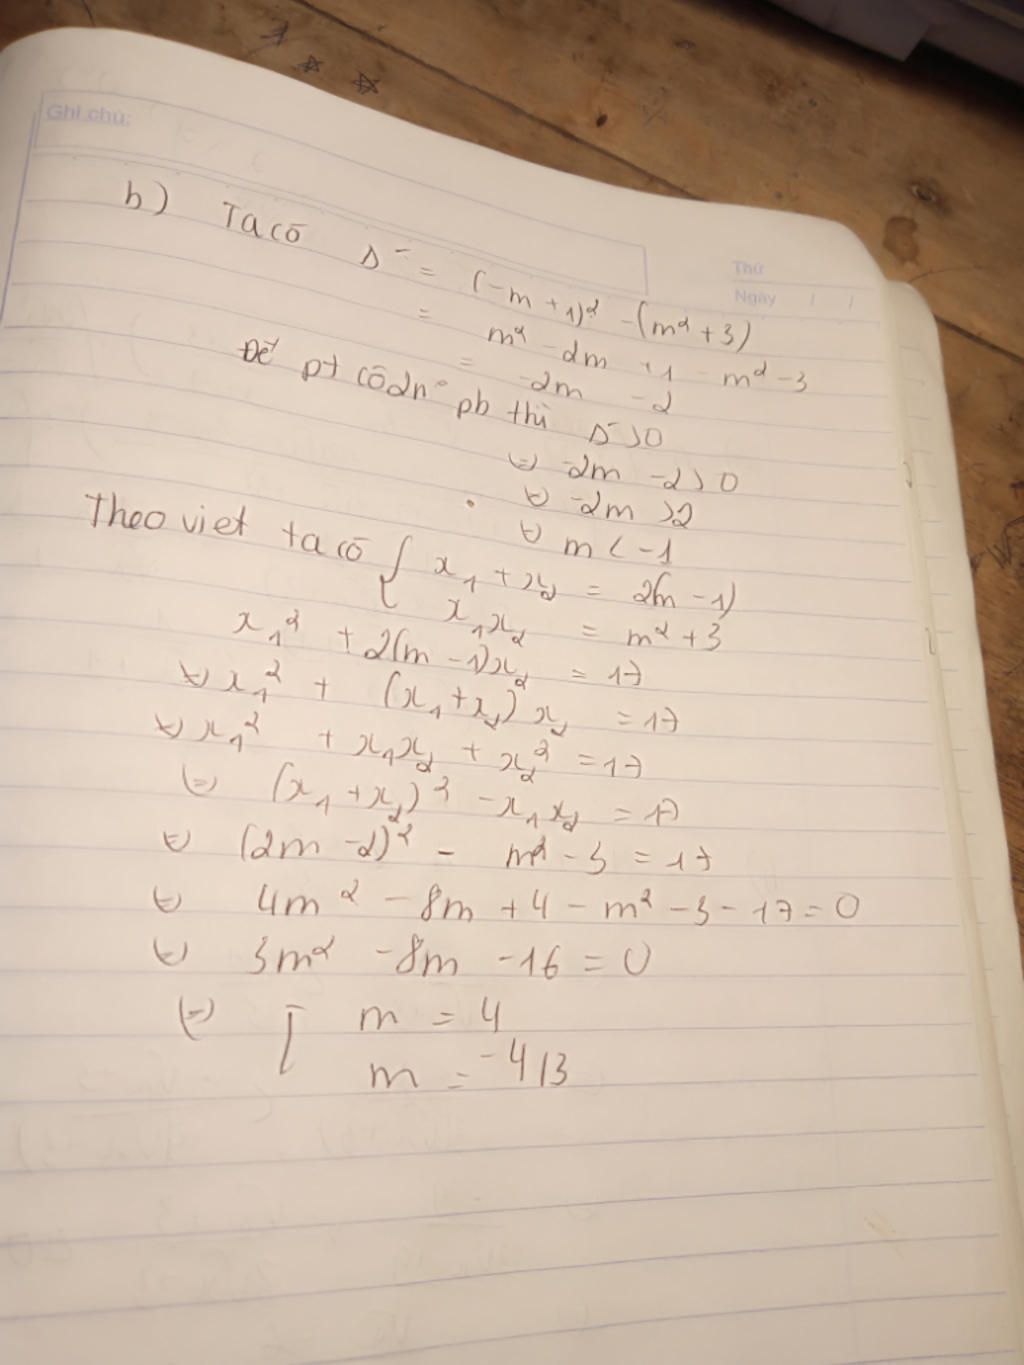 Ghi chú:
Thứ
Ngày / /
b) Ta có Δ' = (-m+1)² - (m²+3)
= m² - 2m + 1 - m² - 3
= -2m - 2
Để pt có 2n° pb thì Δ' > 0
⇔ -2m - 2 > 0
⇔ -2m > 2
⇔ m < -1
Theo viet ta có { x₁ + x₂ = 2(m - 1)
x₁x₂ = m² + 3
x₁² + 2(m - 1)x₂ = 17
⇔ x₁² + (x₁ + x₂) x₂ = 17
⇔ x₁² + x₁x₂ + x₂² = 17
⇔ (x₁ + x₂)² - x₁x₂ = 17
⇔ (2m - 2)² - m² - 3 = 17
⇔ 4m² - 8m + 4 - m² - 3 - 17 = 0
⇔ 3m² - 8m - 16 = 0
⇔ [ m = 4
m = -4/3